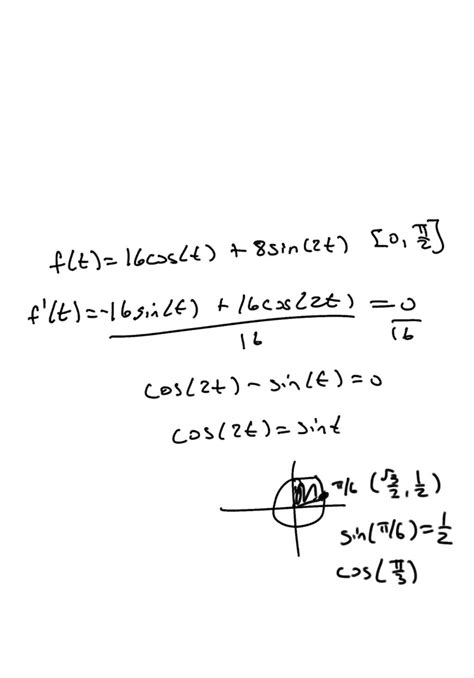 f(t)=16cos(t) + 8sin(2t) [0, π/2]
f'(t)=-16sin(t) + 16cos(2t) = 0
16 16
cos(2t) - sin(t) = 0
cos(2t) = sin t
π/6 (√3/2, 1/2)
sin(π/6) = 1/2
cos(π/3)